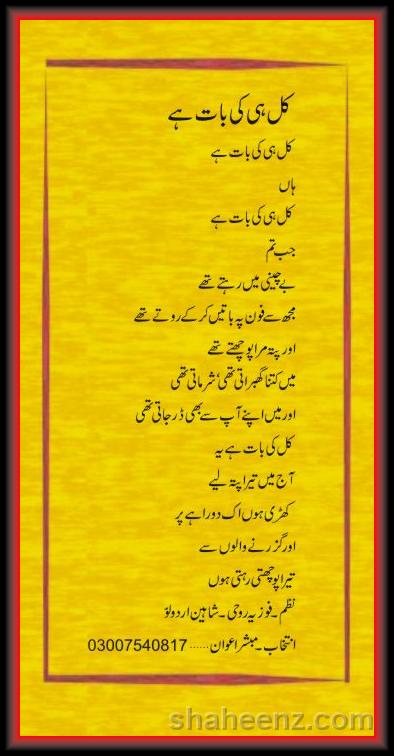 کل ہی کی بات ہے
کل ہی کی بات ہے
ہاں
کل ہی کی بات ہے
جب تم
بے چینی میں رہتے تھے
مجھ سے فون پہ باتیں کر کے روتے تھے
اور پتہ مرا پوچھتے تھے
میں کتنا گھبراتی تھی، شرماتی تھی
اور میں اپنے آپ سے بھی ڈر جاتی تھی
کل کی بات ہے یہ
آج میں تیرا پتہ لیے
کھڑی ہوں اک دوراہے پر
اور گزرنے والوں سے
تیرا پوچھتی رہتی ہوں
نظم۔ فوزیہ روحی۔ شاہین اردو لوّ
انتخاب۔ مبشر اعوان ...... 03007540817
shaheenz.com